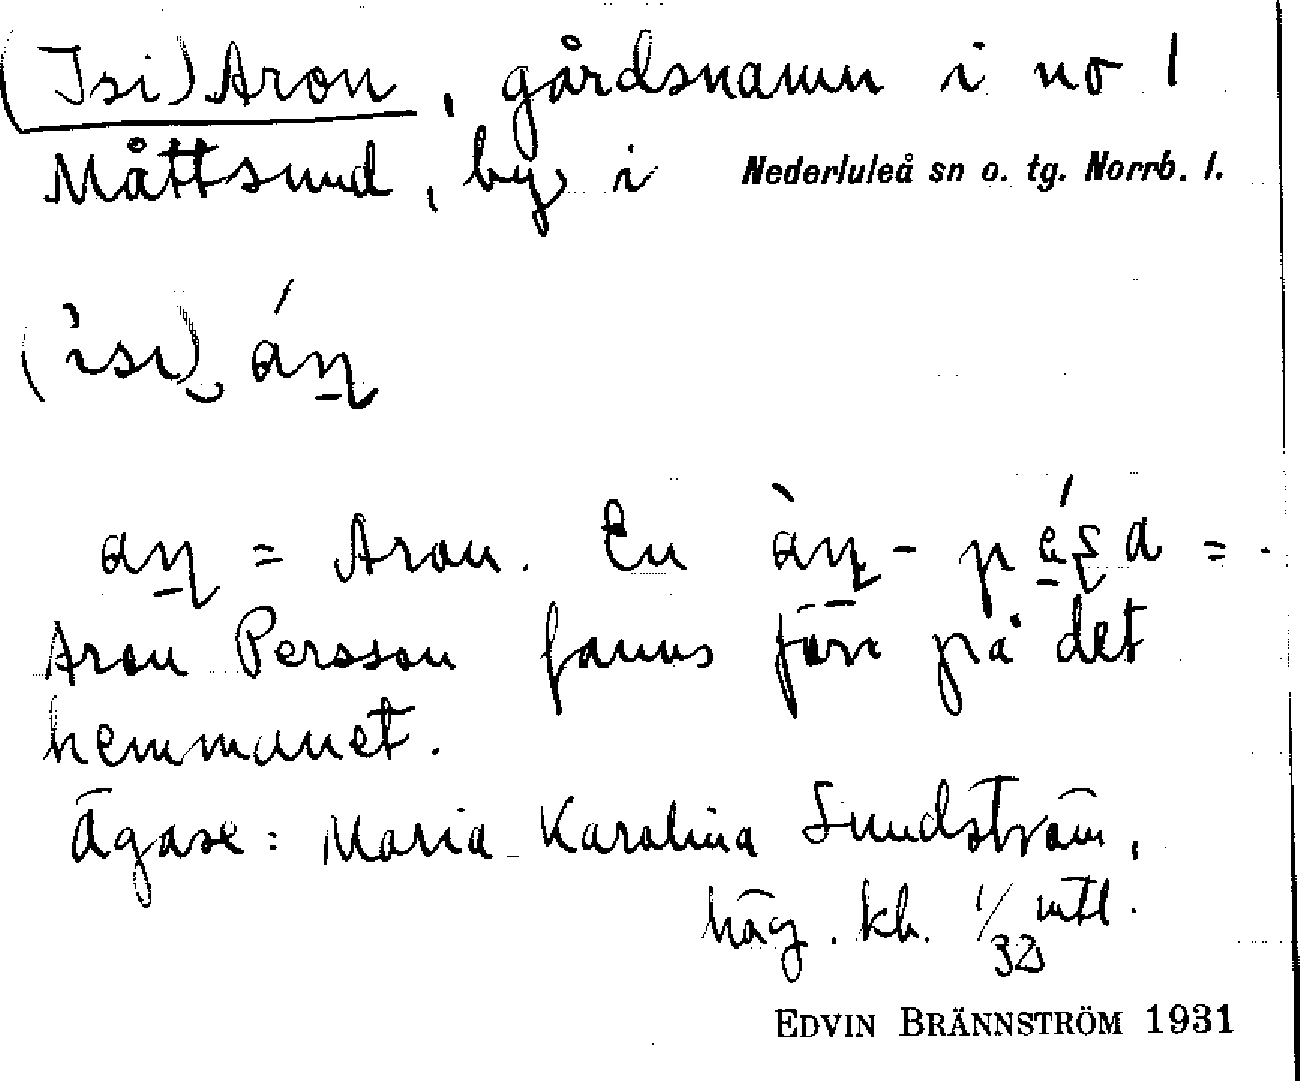 (Isi) Aron, gårdsnamn i no 1
Måttsund, by i Nederluleå sn o. tg. Norrb. l.
(ìsi)‿áṉ
aṉ = Aron. En àṉ-pésa =
Aron Persson fanns förr på det
hemmanet.
Ägare: Maria Karolina Sundström,
häg. kh. 1/32 mtl.
EDVIN BRÄNNSTRÖM 1931